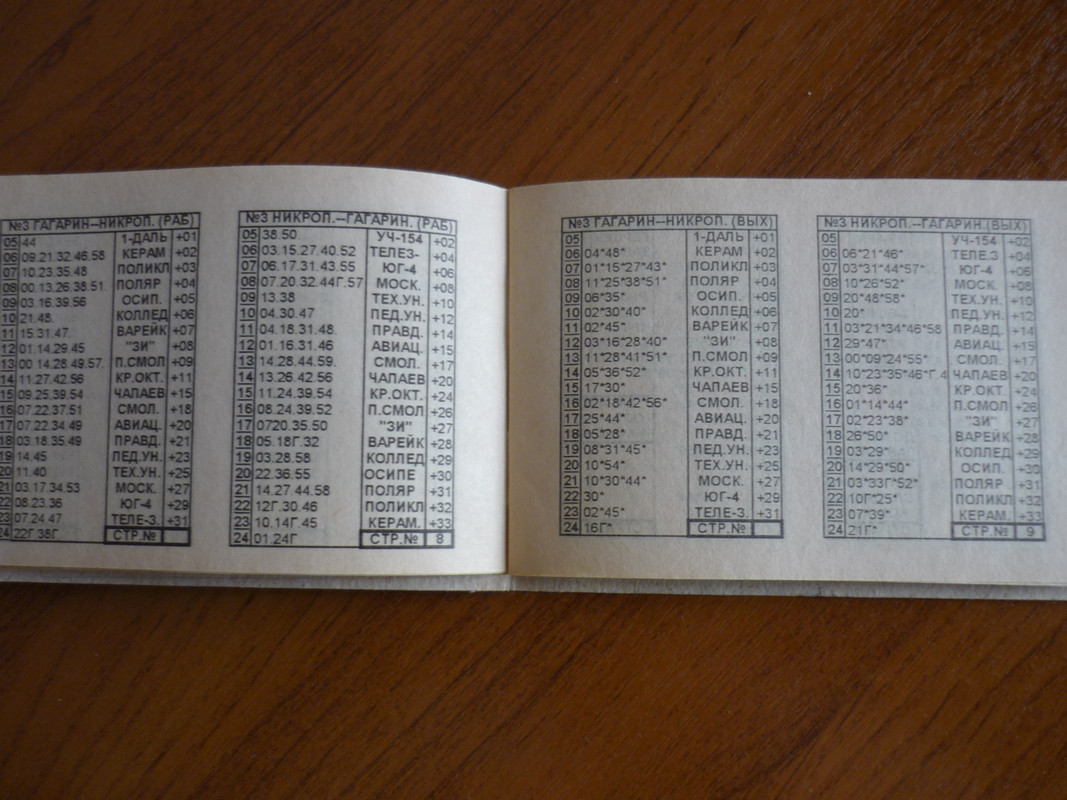 №3 ГАГАРИН--НИКРОП. (РАБ)
05 44 1-ДАЛЬ +01
06 09.21.32.46.58 КЕРАМ +02
07 10.23.35.48 ПОЛИКЛ +03
08 00.13.26.38.51. ПОЛЯР +04
09 03.16.39.56 ОСИП. +05
10 21.48. КОЛЛЕД +06
11 15.31.47. ВАРЕЙК +07
12 01.14.29.45 "ЗИ" +08
13 00.14.28.49.57. П.СМОЛ +09
14 11.27.42.56 КР.ОКТ. +11
15 09.25.39.54 ЧАПАЕВ +15
16 07.22.37.51 СМОЛ. +18
17 07.22.34.49 АВИАЦ. +20
18 03.18.35.49 ПРАВД. +21
19 14.45 ПЕД.УН. +23
20 11.40 ТЕХ.УН. +25
21 03.17.34.53 МОСК. +27
22 08.23.36 ЮГ-4 +29
23 07.24.47 ТЕЛЕ-3. +31
24 22Г.38Г СТР.№
№3 НИКРОП.--ГАГАРИН. (РАБ)
05 38.50. УЧ-154 +02
06 03.15.27.40.52 ТЕЛЕ3- +04
07 06.17.31.43.55 ЮГ-4 +06
08 07.20.32.44Г.57 МОСК. +08
09 13.38 ТЕХ.УН. +10
10 04.30.47 ПЕД.УН. +12
11 04.18.31.48. ПРАВД. +14
12 01.16.31.46 АВИАЦ. +15
13 14.28.44.59. СМОЛ. +17
14 13.26.42.56 ЧАПАЕВ +20
15 11.24.39.54 КР.ОКТ. +24
16 08.24.39.52 П.СМОЛ +26
17 0720.35.50 "ЗИ" +27
18 05.18Г.32 ВАРЕЙК +28
19 03.28.58 КОЛЛЕД +29
20 22.36.55 ОСИПЕ +30
21 14.27.44.58 ПОЛЯР +31
22 12Г.30.46 ПОЛИКЛ +32
23 10.14Г.45 КЕРАМ. +33
24 01.24Г СТР.№ 8
№3 ГАГАРИН--НИКРОП. (ВЫХ)
05 1-ДАЛЬ +01
06 04*48* КЕРАМ +02
07 01*15*27*43* ПОЛИКЛ +03
08 11*25*38*51* ПОЛЯР +04
09 06*35* ОСИП. +05
10 02*30*40* КОЛЛЕД +06
11 02*45* ВАРЕЙК +07
12 03*16*28*40* "ЗИ" +08
13 11*28*41*51* П.СМОЛ +09
14 05*36*52* КР.ОКТ. +11
15 17*30* ЧАПАЕВ +15
16 02*18*42*56* СМОЛ. +18
17 25*44* АВИАЦ. +20
18 05*28* ПРАВД. +21
19 08*31*45* ПЕД.УН. +23
20 10*54* ТЕХ.УН. +25
21 10*30*44* МОСК. +27
22 30* ЮГ-4 +29
23 02*45* ТЕЛЕ-3. +31
24 16Г* СТР.№
№3 НИКРОП.--ГАГАРИН.(ВЫХ)
05 УЧ-154 +02
06 06*21*46* ТЕЛЕ.3 +04
07 03*31*44*57* ЮГ-4 +06
08 10*26*52* МОСК. +08
09 20*48*58* ТЕХ.УН. +10
10 20* ПЕД.УН. +12
11 03*21*34*46*58 ПРАВД. +14
12 29*47* АВИАЦ. +15
13 00*09*24*55* СМОЛ. +17
14 10*23*35*46*Г.4 ЧАПАЕВ +20
15 20*36* КР.ОКТ. +24
16 01*14*44* П.СМОЛ +26
17 02*23*38* "ЗИ" +27
18 26*50* ВАРЕЙК +28
19 03*29* КОЛЛЕД +29
20 14*29*50* ОСИП. +30
21 03*33Г*52* ПОЛЯР +31
22 10Г*25* ПОЛИКЛ +32
23 07*39* КЕРАМ. +33
24 21Г* СТР.№ 9